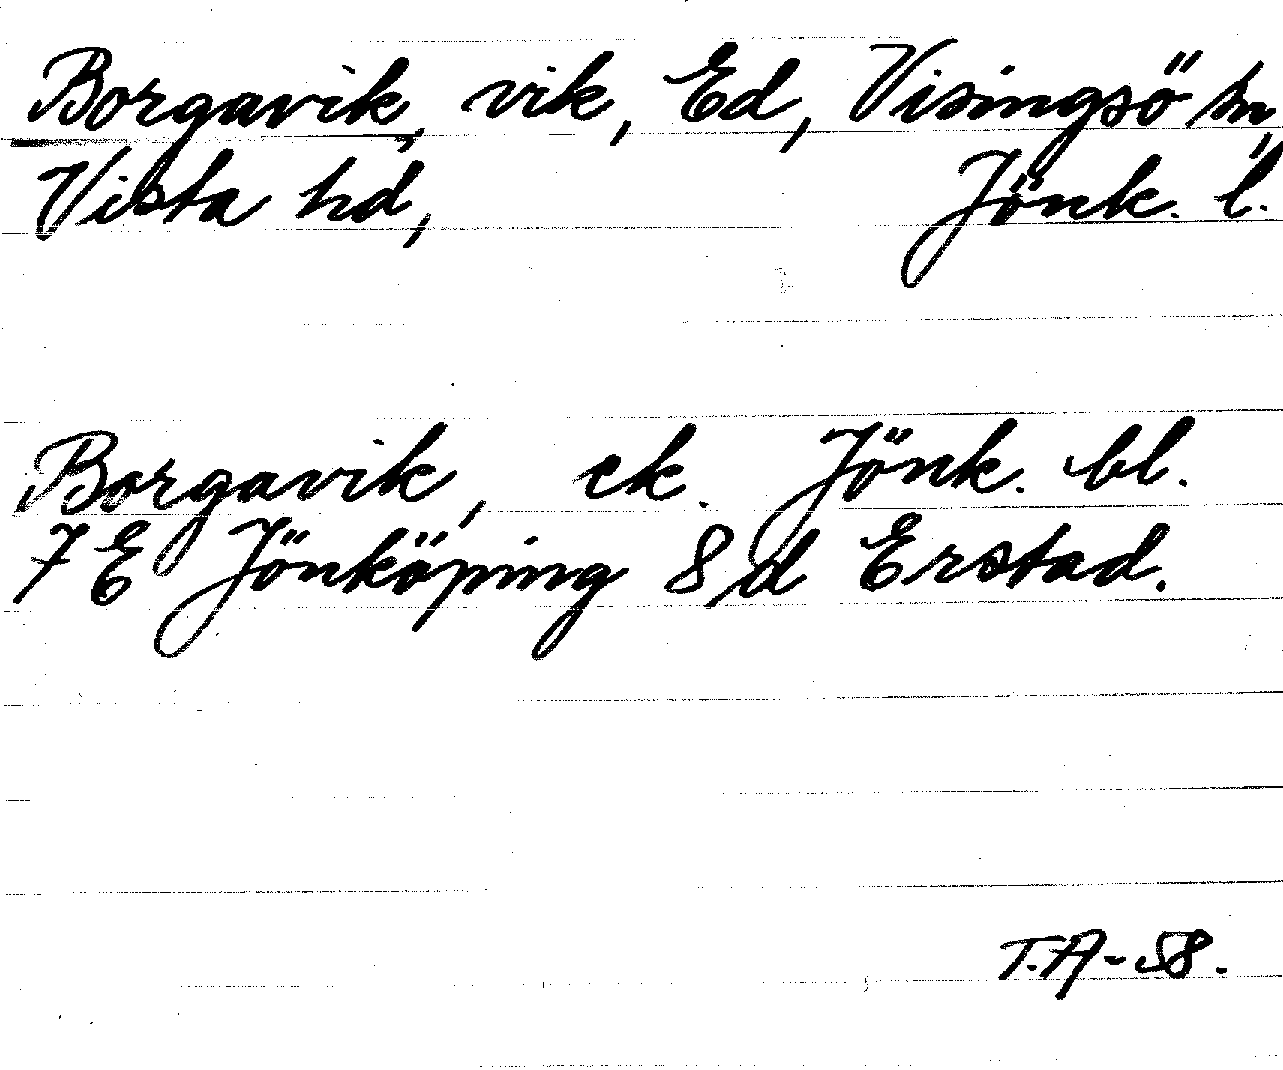 Borgavik, vik, Ed, Visingsö sn,
Vista hd, Jönk. l.
Borgavik, ek. Jönk. bl.
7 E Jönköping 8 d Erstad.
T.A-58.